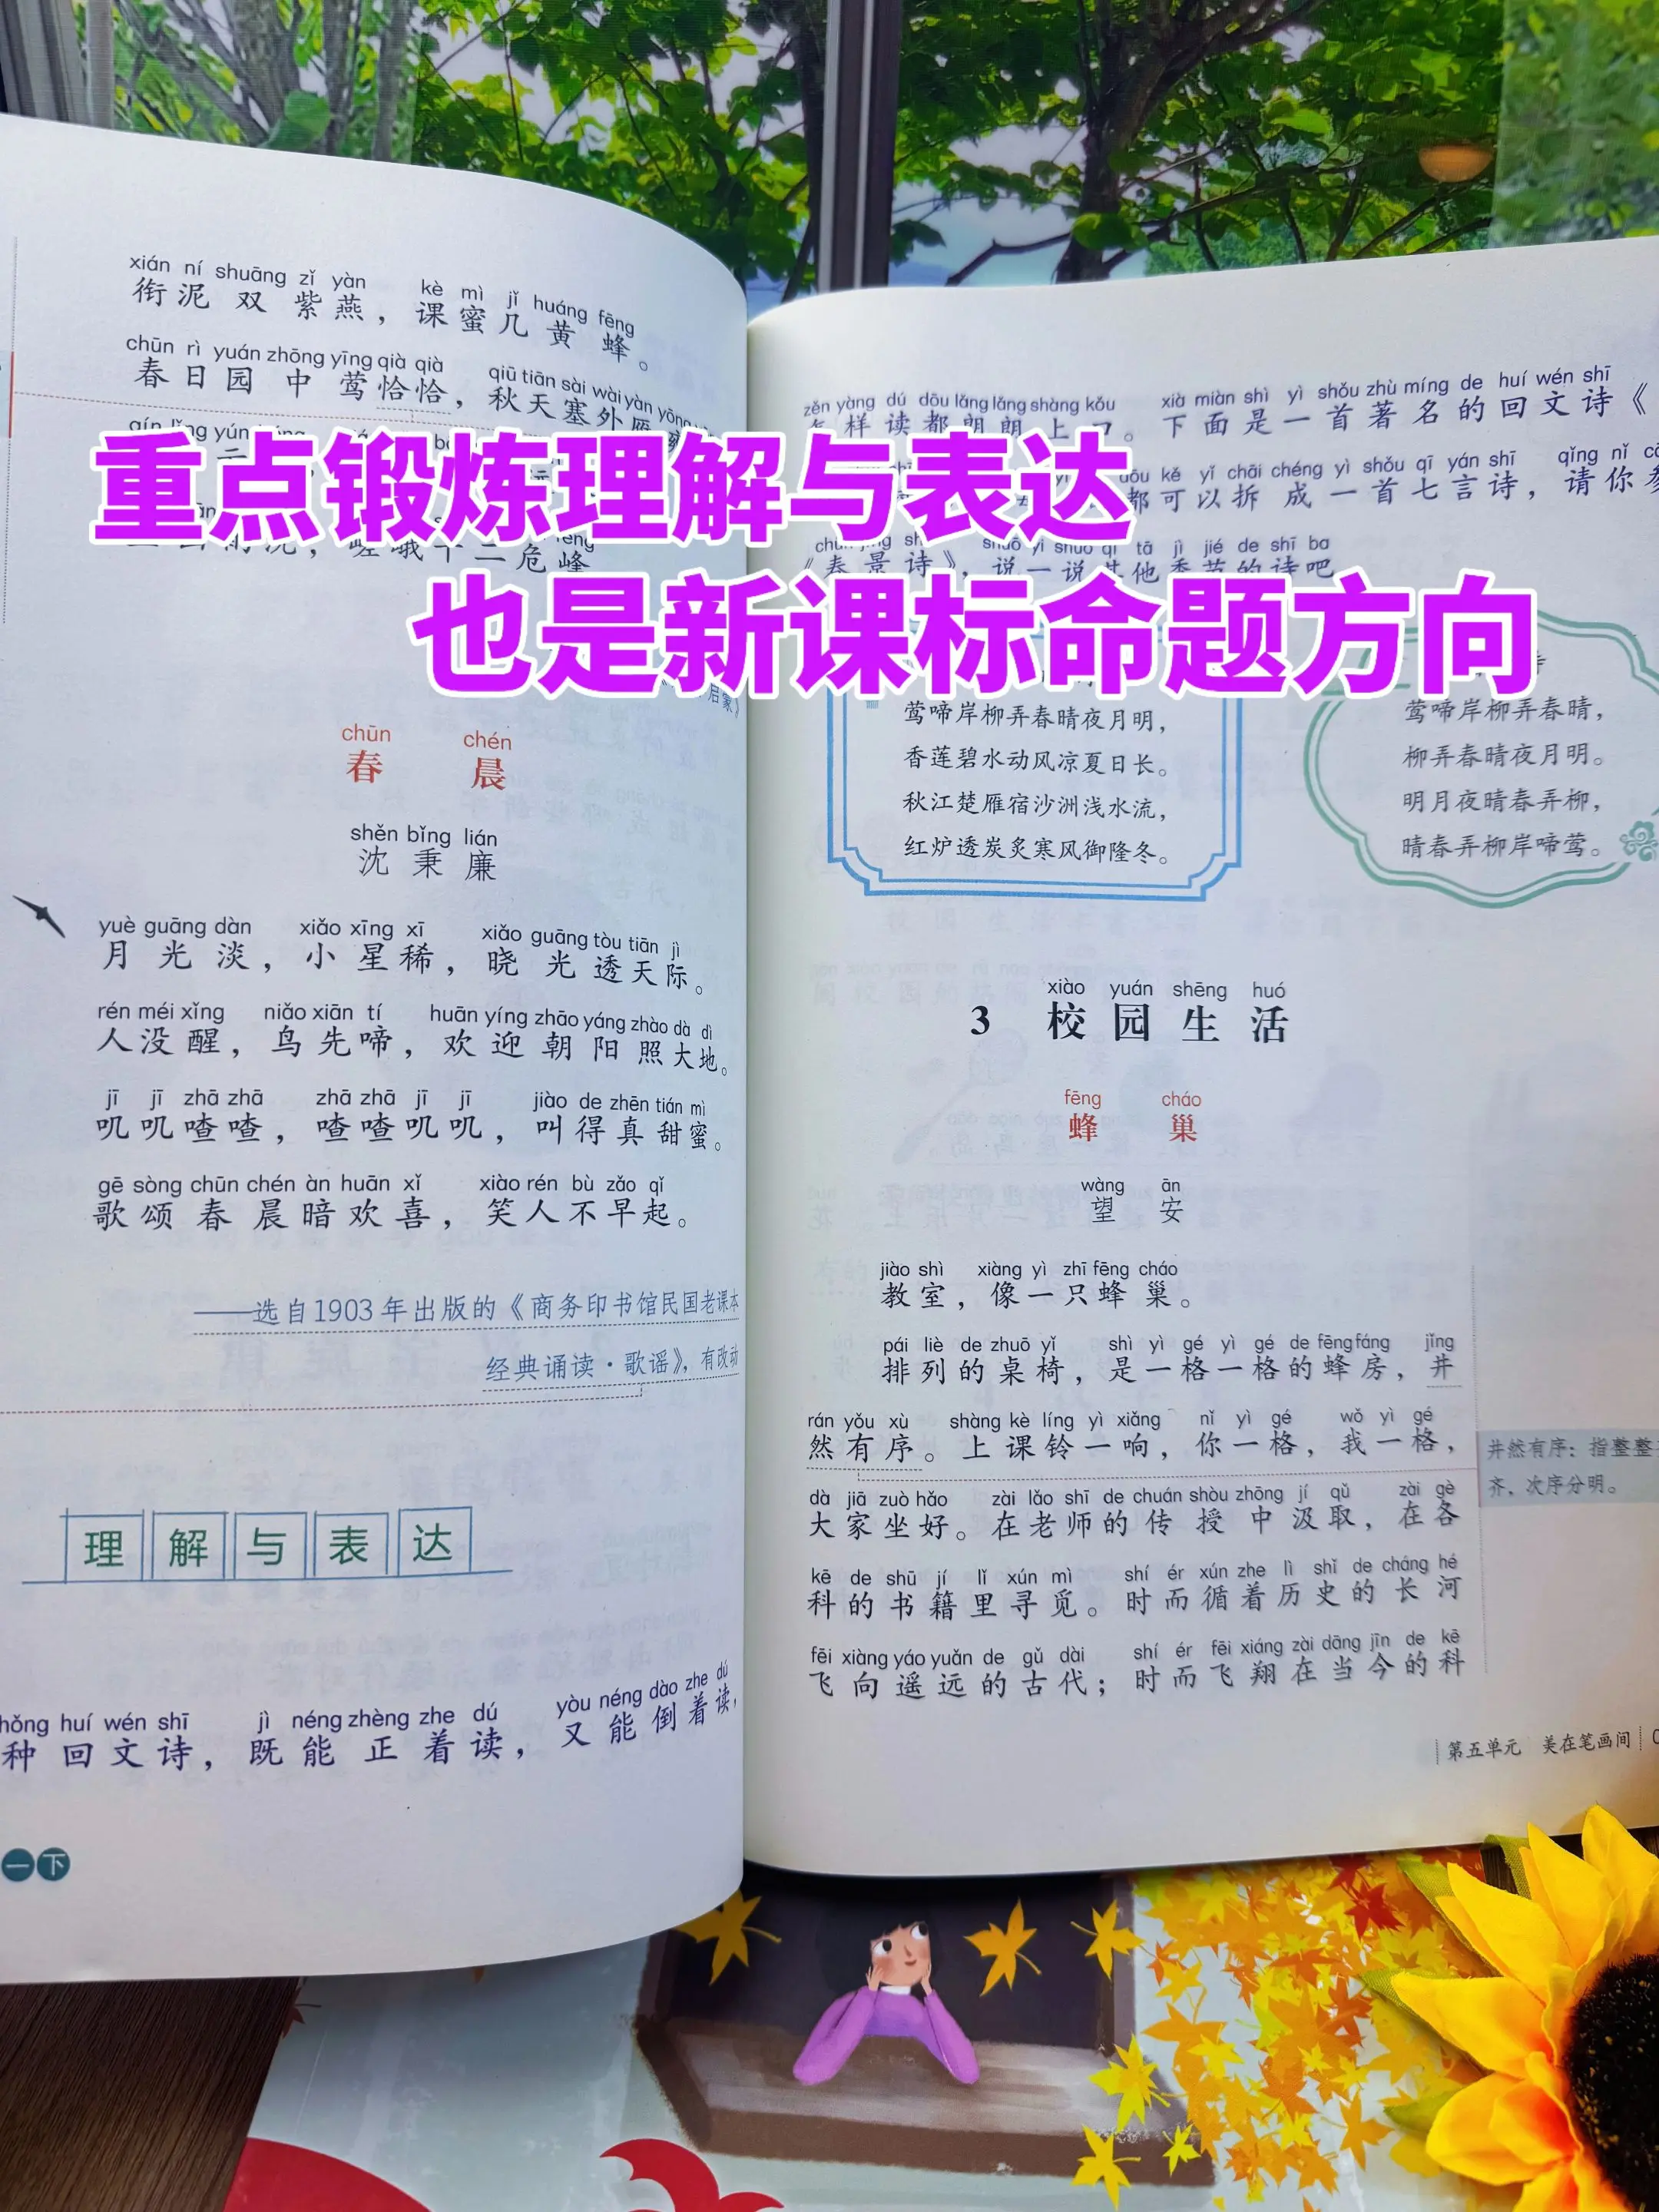 重点锻炼理解与表达
也是新课标命题方向
xián ní shuāng zǐ yàn kè mì jǐ huáng fēng
衔泥双紫燕，课蜜几黄蜂。
chūn rì yuán zhōng yīng qià qià qiū tiān sài wài yàn yōng
春日园中莺恰恰，秋天塞外雁
危峰
chūn chén
春晨
shěn bǐng lián
沈秉廉
yuè guāng dàn xiǎo xīng xī xiǎo guāng tòu tiān jì
月光淡，小星稀，晓光透天际。
rén méi xǐng niǎo xiān tí huān yíng zhāo yáng zhào dà dì
人没醒，鸟先啼，欢迎朝阳照大地。
jī jī zhā zhā zhā zhā jī jī jiào de zhēn tián mì
叽叽喳喳，喳喳叽叽，叫得真甜蜜。
gē sòng chūn chén àn huān xǐ xiào rén bù zǎo qǐ
歌颂春晨暗欢喜，笑人不早起。
——选自1903年出版的《商务印书馆民国老课本
经典诵读·歌谣》，有改动
理解与表达
hǒng huí wén shī jì néng zhèng zhe dú yòu néng dào zhe dú
种回文诗，既能正着读，又能倒着读，
一下
zěn yàng dú dōu lǎng lǎng shàng kǒu xià miàn shì yì shǒu zhù míng de huí wén shī
样读都朗朗上口。下面是一首著名的回文诗《
dōu kě yǐ chāi chéng yì shǒu qī yán shī qǐng nǐ
都可以拆成一首七言诗，请你
shuō yi shuō qí tā jì jié de shī ba
《春景诗》，说一说其他季节的诗吧
莺啼岸柳弄春晴夜月明，
香莲碧水动风凉夏日长。
秋江楚雁宿沙洲浅水流，
红炉透炭炙寒风御隆冬。
莺啼岸柳弄春晴，
柳弄春晴夜月明。
明月夜晴春弄柳，
晴春弄柳岸啼莺。
xiào yuán shēng huó
3 校园生活
fēng cháo
蜂巢
wàng ān
望安
jiào shì xiàng yì zhī fēng cháo
教室，像一只蜂巢。
pái liè de zhuō yǐ shì yì gé yì gé de fēng fáng jǐng
排列的桌椅，是一格一格的蜂房，井
rán yǒu xù shàng kè líng yì xiǎng nǐ yì gé wǒ yì gé
然有序。上课铃一响，你一格，我一格，
井然有序：指整整
齐，次序分明。
dà jiā zuò hǎo zài lǎo shī de chuán shòu zhōng jí qǔ zài gè
大家坐好。在老师的传授中汲取，在各
kē de shū jí lǐ xún mì shí ér xún zhe lì shǐ de cháng hé
科的书籍里寻觅。时而循着历史的长河
fēi xiàng yáo yuǎn de gǔ dài shí ér fēi xiáng zài dāng jīn de kē
飞向遥远的古代；时而飞翔在当今的科
第五单元 美在笔画间